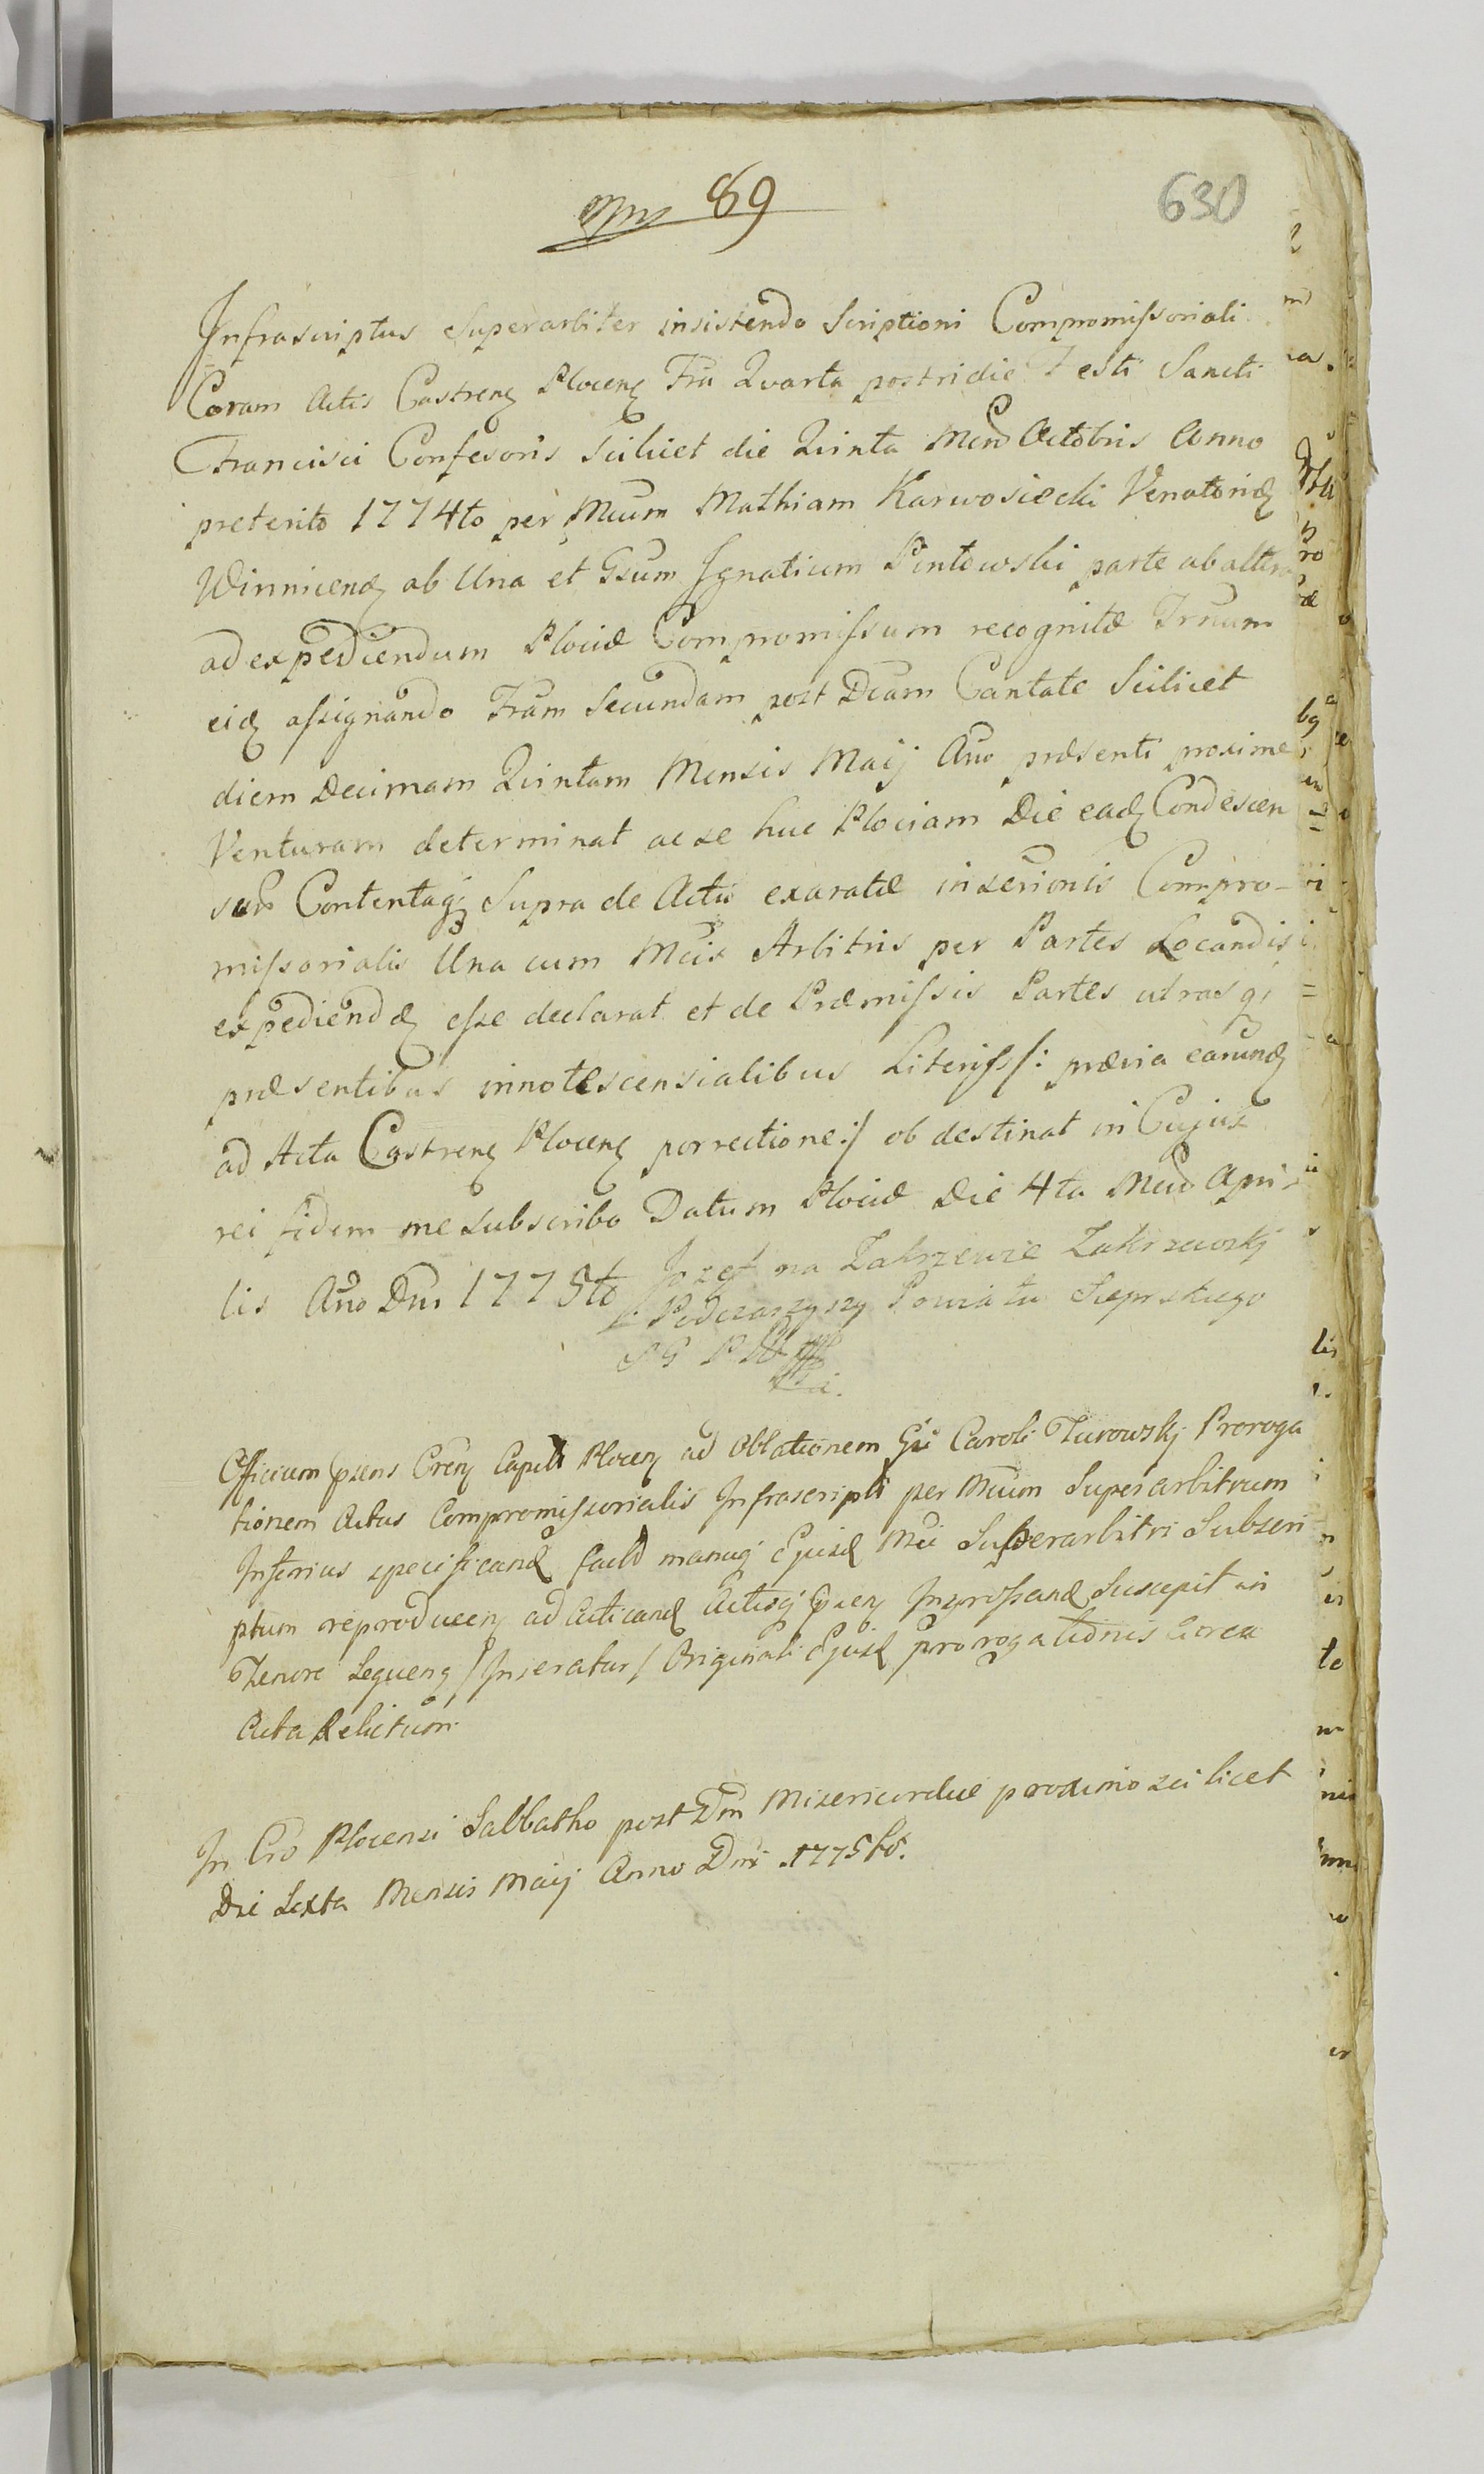 Nrus 89
630
Infrascriptus Superarbiter insistendo Scriptioni Compromissoriali
Coram Actis Castren Plocen Fria Quarta postridie Festi Sancti
Francisci Confesoris Scilicet die Quinta Mens Octobris Anno
preterito 1774to per Mcum Mathiam Karwosiecki Venatorid
Winnicens ab Una et Gsum Ignatium Pentowski parte ab altera
ad expediendum Plociæ Compromissum recognitæ Trnum
eid assignando Fram Secundam post Dcam Cantate Scilicet
diem Decimam Quintam Mensis Maij Ano præsenti proxime
Venturam determinat ac se huc Plociam Die ead Condescen
Contentaq Supra de Actu exaratæ inserionis Compro-
missorialis Una cum Mcis Arbitris per Partes Locandis
expediend esse declarat et de Præmissis Partes utrasq
præsentibus innotescensialibus Literis /: prævia earund
ad Acta Castren Plocen porrectione :/ obdestinat in Cujus
rei fidem me subscribo Datum Plociæ Die 4ta Mens Apri-
lis Ano Dni 1775to Jozef na Zakrzewie Zakrzewskj
Podczaszyszy Powiatu Sieprskiego
Officium psens Cren Capit Plocen ad Oblationem Gsi Caroli Turowskj Proroga
tionem Actus Compromissorialis Infrascripti per Mcum Superarbitrum
Inferius specificand fact manuq Ejusd Mci Superarbitri Subscri
ptum reproducen ad acticand Actisq psen Ingrossand Suscepit in
Tenore Sequens /Inseratur/ Originali Ejusd prorogationis circa
Acta Relictum
In Cro Plocensi Sabbatho post Dm Misericordiæ proximo scilicet
Die Sexta Mensis Maij Anno Dni 1775to.